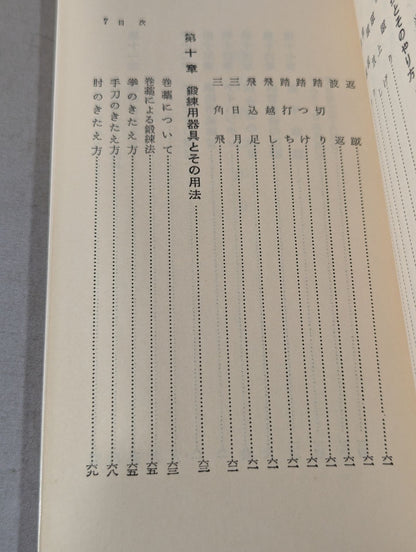 とそのやり方
返蹴 六一
波返 六一
踏切り 六一
踏つけ 六一
踏打ち 六一
飛越し 六一
飛込足 六一
三日月 六一
三角飛 六一
第十章 鍛練用器具とその用法 六三
巻藁について 六三
巻藁による鍛練法 六五
拳のきたえ方 六五
手刀のきたえ方 六八
肘のきたえ方 六九
7 目次